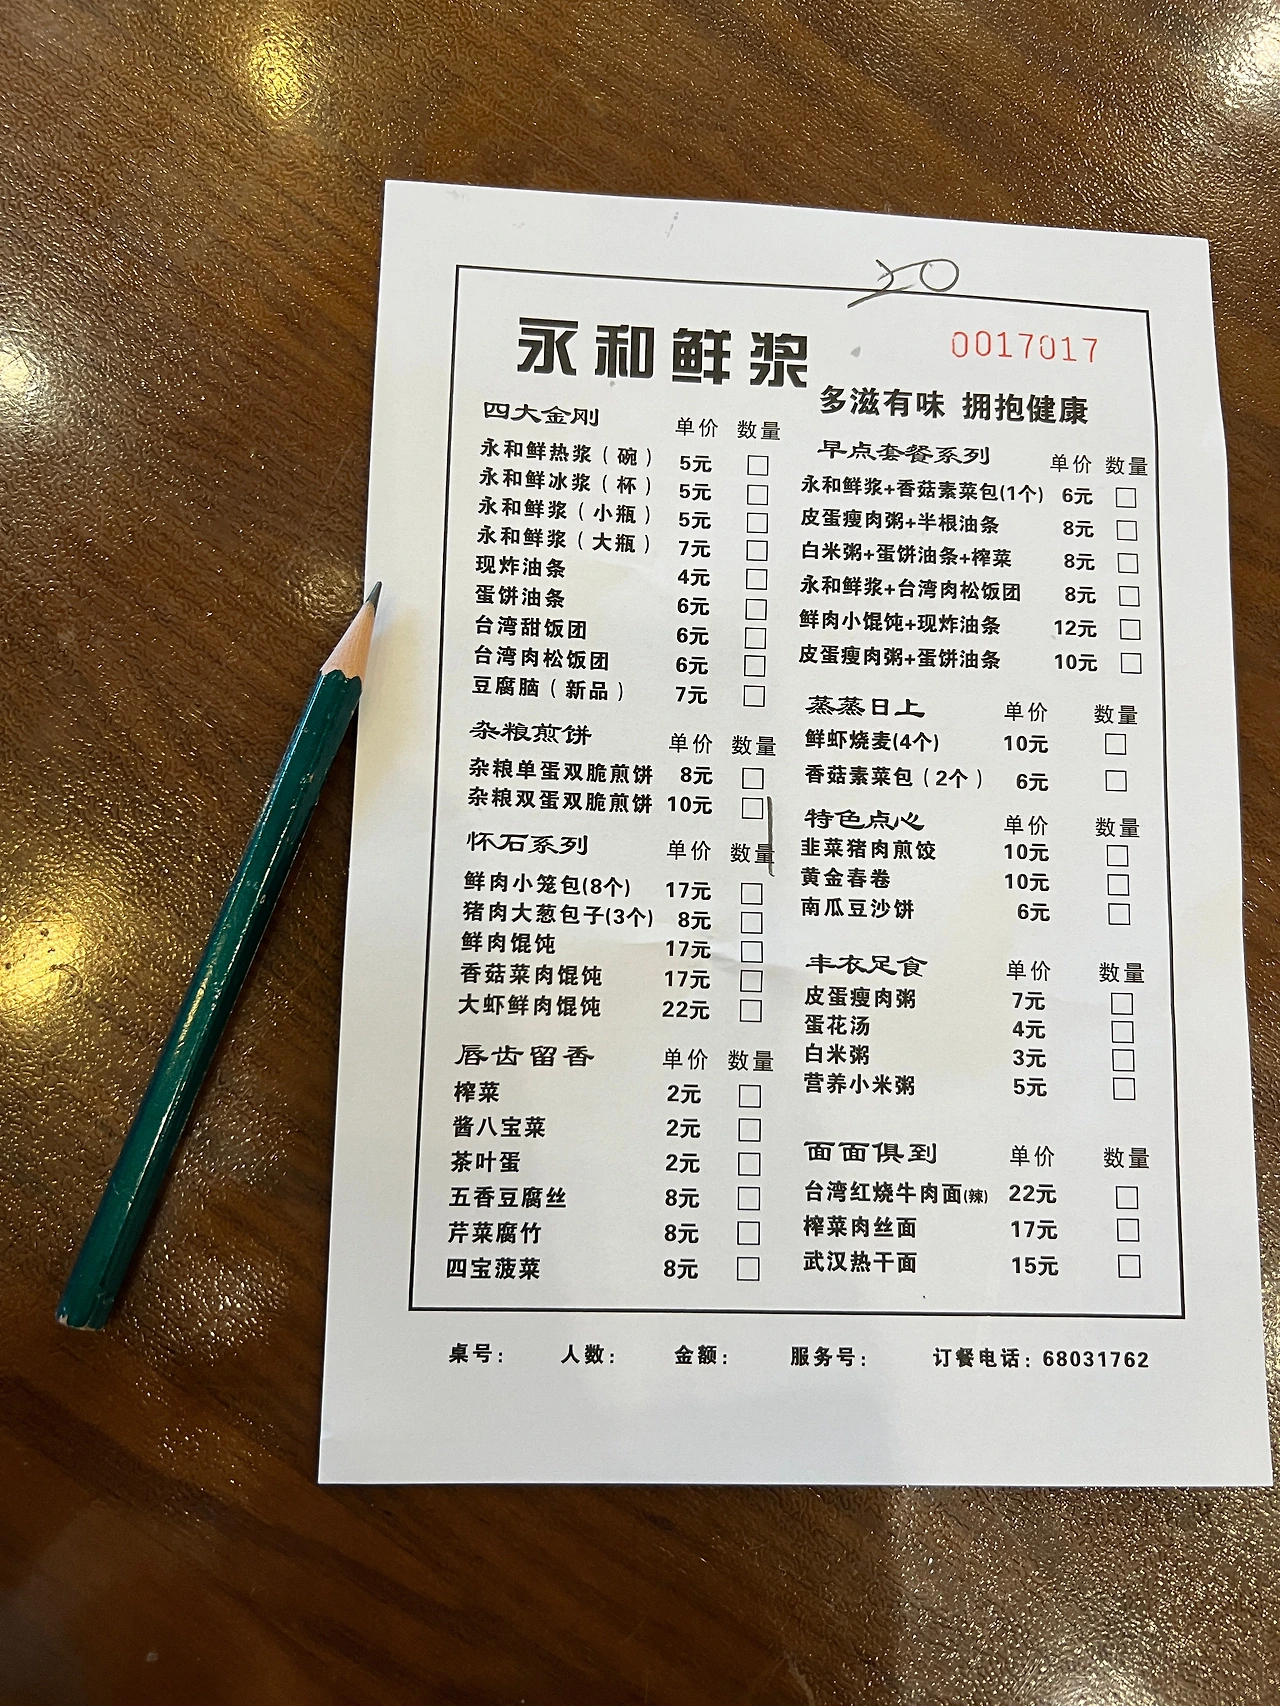 永和鲜浆
0017017
多滋有味 拥抱健康
四大金刚 单价 数量
永和鲜热浆（碗） 5元
永和鲜冰浆（杯） 5元
永和鲜浆（小瓶） 5元
永和鲜浆（大瓶） 7元
现炸油条 4元
蛋饼油条 6元
台湾甜饭团 6元
台湾肉松饭团 6元
豆腐脑（新品） 7元
杂粮煎饼 单价 数量
杂粮单蛋双脆煎饼 8元
杂粮双蛋双脆煎饼 10元
怀石系列 单价 数量
鲜肉小笼包(8个) 17元
猪肉大葱包子(3个) 8元
鲜肉馄饨 17元
香菇菜肉馄饨 17元
大虾鲜肉馄饨 22元
唇齿留香 单价 数量
榨菜 2元
酱八宝菜 2元
茶叶蛋 2元
五香豆腐丝 8元
芹菜腐竹 8元
四宝菠菜 8元
早点套餐系列 单价 数量
永和鲜浆+香菇素菜包(1个) 6元
皮蛋瘦肉粥+半根油条 8元
白米粥+蛋饼油条+榨菜 8元
永和鲜浆+台湾肉松饭团 8元
鲜肉小馄饨+现炸油条 12元
皮蛋瘦肉粥+蛋饼油条 10元
蒸蒸日上 单价 数量
鲜虾烧麦(4个) 10元
香菇素菜包（2个） 6元
特色点心 单价 数量
韭菜猪肉煎饺 10元
黄金春卷 10元
南瓜豆沙饼 6元
丰衣足食 单价 数量
皮蛋瘦肉粥 7元
蛋花汤 4元
白米粥 3元
营养小米粥 5元
面面俱到 单价 数量
台湾红烧牛肉面(辣) 22元
榨菜肉丝面 17元
武汉热干面 15元
桌号： 人数： 金额： 服务号： 订餐电话：68031762